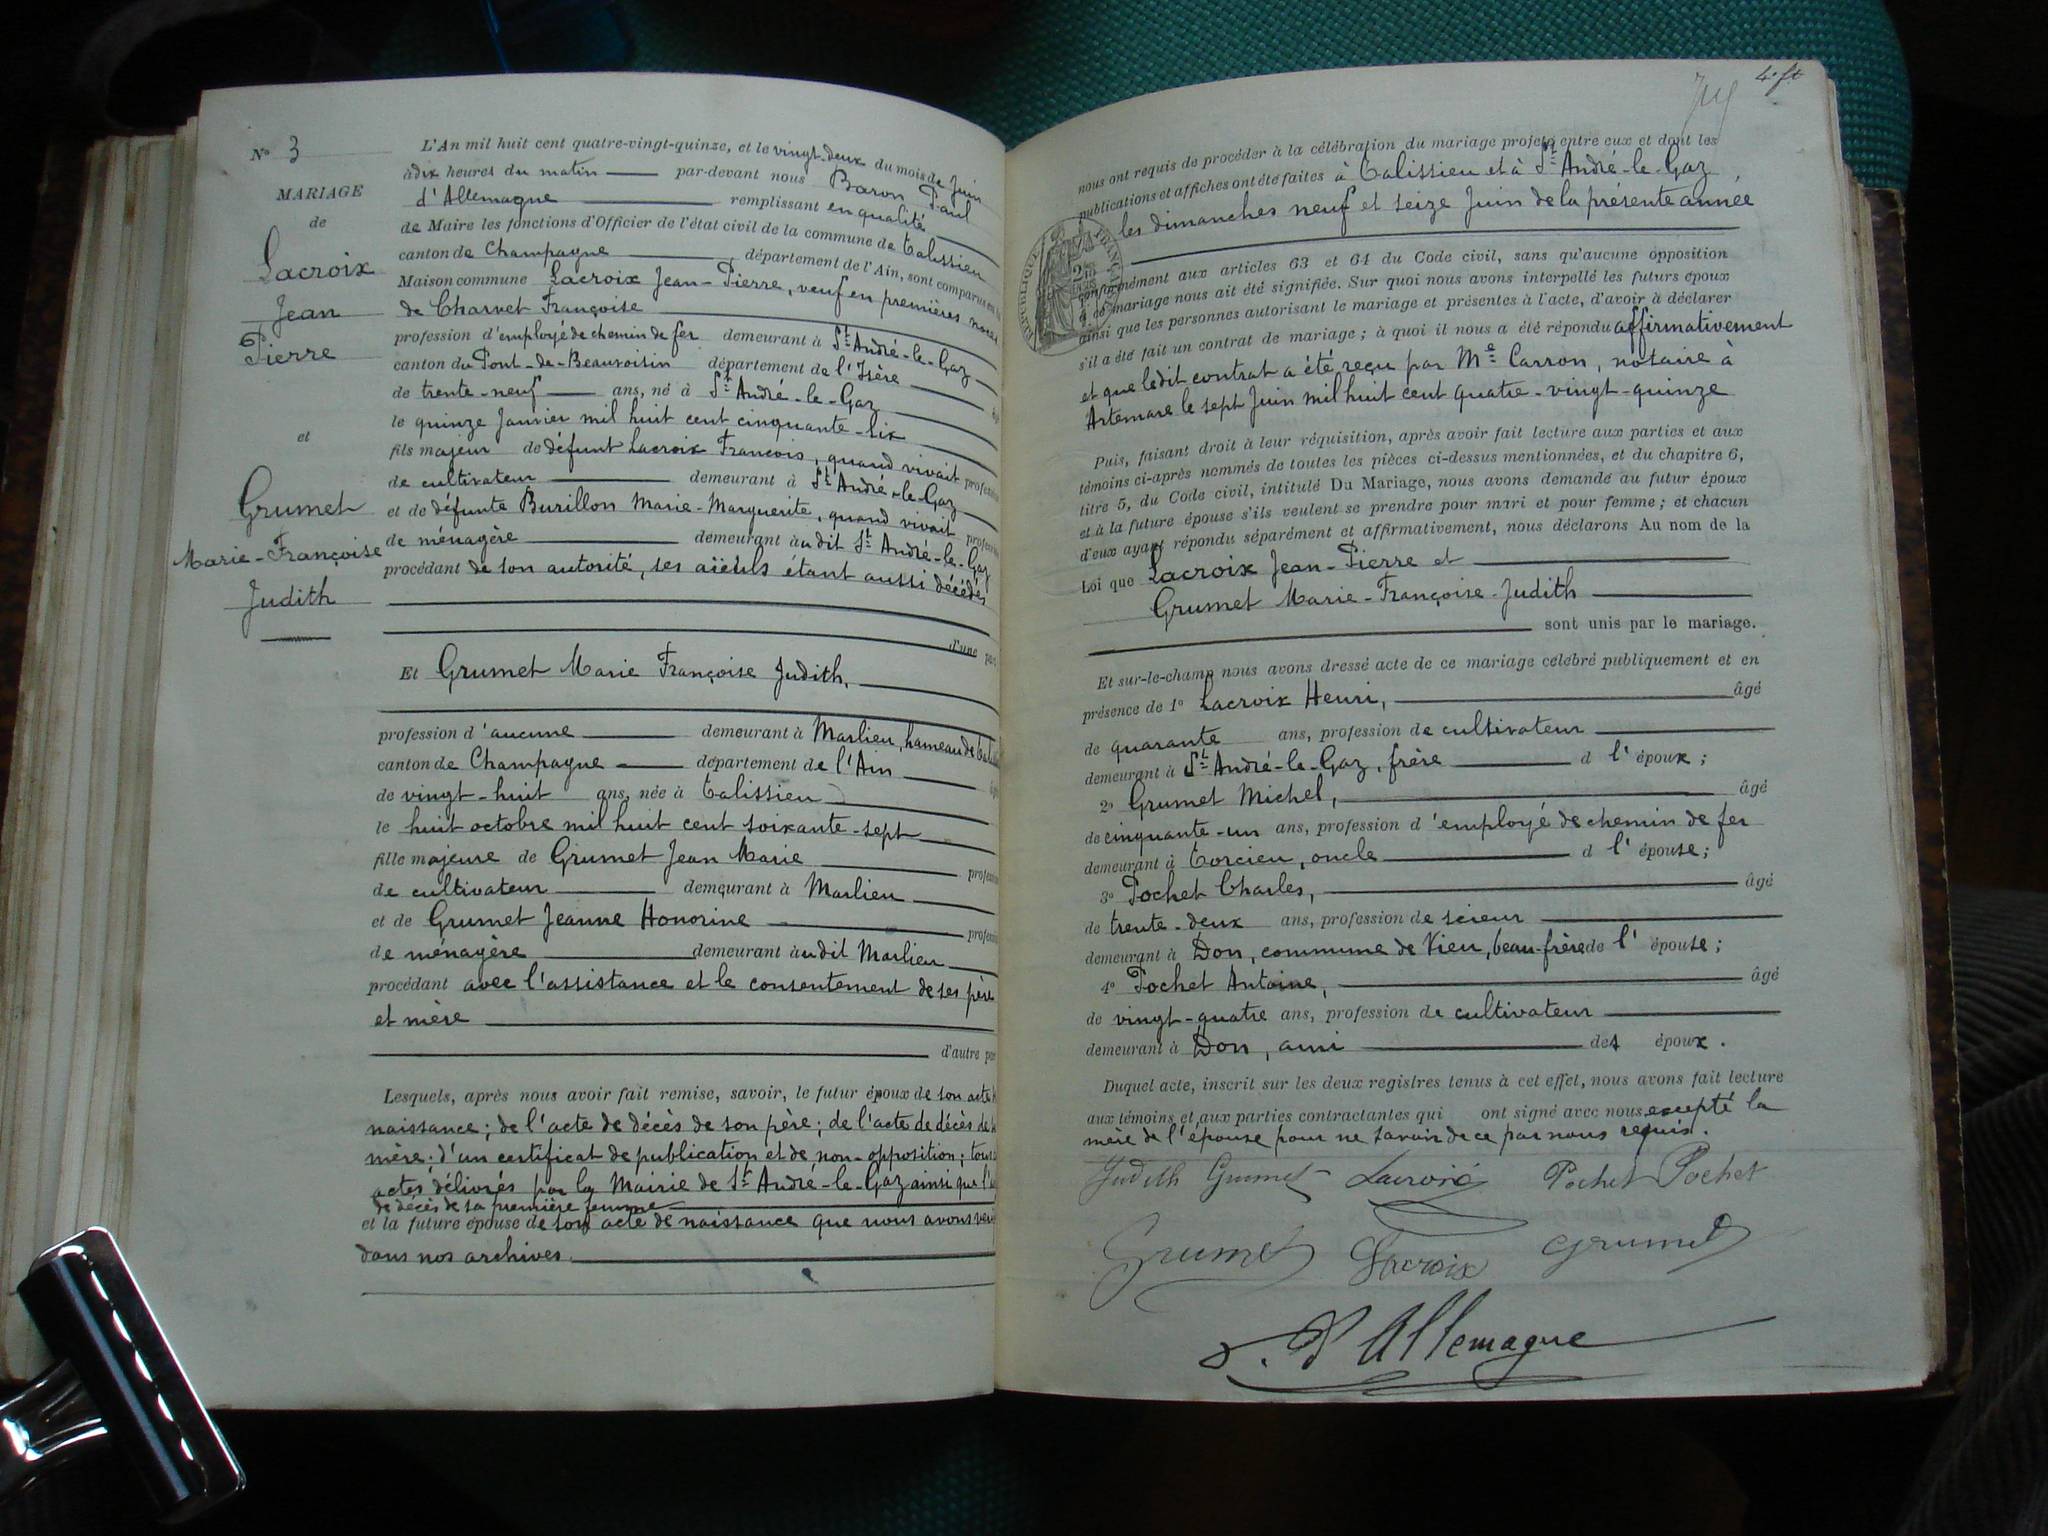 N° 3
MARIAGE
de
Lacroix
Jean
Pierre
et
Grumet
Marie-Françoise
Judith
L'An mil huit cent quatre-vingt-quinze, et le vingt-deux du mois de Juin
à dix heures du matin par-devant nous Baron Paul
d'Allemagne remplissant en qualité
de Maire les fonctions d'Officier de l'état civil de la commune de Talissieu
canton de Champagne, département de l'Ain, sont comparus en la
Maison commune Lacroix Jean-Pierre, veuf en premières noces
de Charvet Françoise
profession d'employé de chemin de fer demeurant à St André-le-Gaz
canton du Pont-de-Beauvoisin département de l'Isère
de trente-neuf ans, né à St André-le-Gaz
le quinze Janvier mil huit cent cinquante-six
fils majeur de défunt Lacroix François, quand vivait
de cultivateur demeurant à St André-le-Gaz
et de défunte Burillon Marie-Marguerite, quand vivait
de ménagère demeurant audit St André-le-Gaz
procédant de son autorité, ses aïeuls étant aussi décédés
d'une
Et Grumet Marie Françoise Judith,
profession d'aucune demeurant à Marlieu, hameau de
canton de Champagne département de l'Ain
de vingt-huit ans, née à Talissieu
le huit octobre mil huit cent soixante-sept
fille majeure de Grumet Jean Marie
de cultivateur demeurant à Marlieu
et de Grumet Jeanne Honorine
de ménagère demeurant audit Marlieu
procédant avec l'assistance et le consentement de ses père
et mère
d'autre
Lesquels, après nous avoir fait remise, savoir, le futur époux de son acte
naissance; de l'acte de décès de son père; de l'acte de décès de
mère; d'un certificat de publication et de non-opposition; tous
actes délivrés par la Mairie de St André-le-Gaz ainsi que
de décès de sa première femme
et la future épouse de son acte de naissance que nous avons
dans nos archives.
4e ft
nous ont requis de procéder à la célébration du mariage projeté entre eux et dont les
publications et affiches ont été faites à Talissieu et à St André-le-Gaz
les dimanches neuf et seize Juin de la présente année
conformément aux articles 63 et 64 du Code civil, sans qu'aucune opposition
à ce mariage nous ait été signifiée. Sur quoi nous avons interpellé les futurs époux
ainsi que les personnes autorisant le mariage et présentes à l'acte, d'avoir à déclarer
s'il a été fait un contrat de mariage; à quoi il nous a été répondu affirmativement
et que ledit contrat a été reçu par Me Carron, notaire à
Artemare le sept Juin mil huit cent quatre-vingt-quinze
Puis, faisant droit à leur réquisition, après avoir fait lecture aux parties et aux
témoins ci-après nommés de toutes les pièces ci-dessus mentionnées, et du chapitre 6,
titre 5, du Code civil, intitulé Du Mariage, nous avons demandé au futur époux
et à la future épouse s'ils veulent se prendre pour mari et pour femme; et chacun
d'eux ayant répondu séparément et affirmativement, nous déclarons Au nom de la
Loi que Lacroix Jean-Pierre et
Grumet Marie-Françoise-Judith
sont unis par le mariage.
Et sur-le-champ nous avons dressé acte de ce mariage célébré publiquement et en
présence de 1° Lacroix Henri, âgé
de quarante ans, profession de cultivateur
demeurant à St André-le-Gaz, frère d l'époux;
2° Grumet Michel, âgé
de cinquante-un ans, profession d'employé de chemin de fer
demeurant à Torcieu, oncle d l'épouse;
3° Pochet Charles, âgé
de trente-deux ans, profession de scieur
demeurant à Don, commune de Vieu, beau-frère de l'épouse;
4° Pochet Antoine, âgé
de vingt-quatre ans, profession de cultivateur
demeurant à Don, ami des époux.
Duquel acte, inscrit sur les deux registres tenus à cet effet, nous avons fait lecture
aux témoins et aux parties contractantes qui ont signé avec nous, excepté la
mère de l'épouse pour ne savoir de ce par nous requis.
Judith Grumet Lacroix Pochet Pochet
Grumet Lacroix Grumet
d'Allemagne